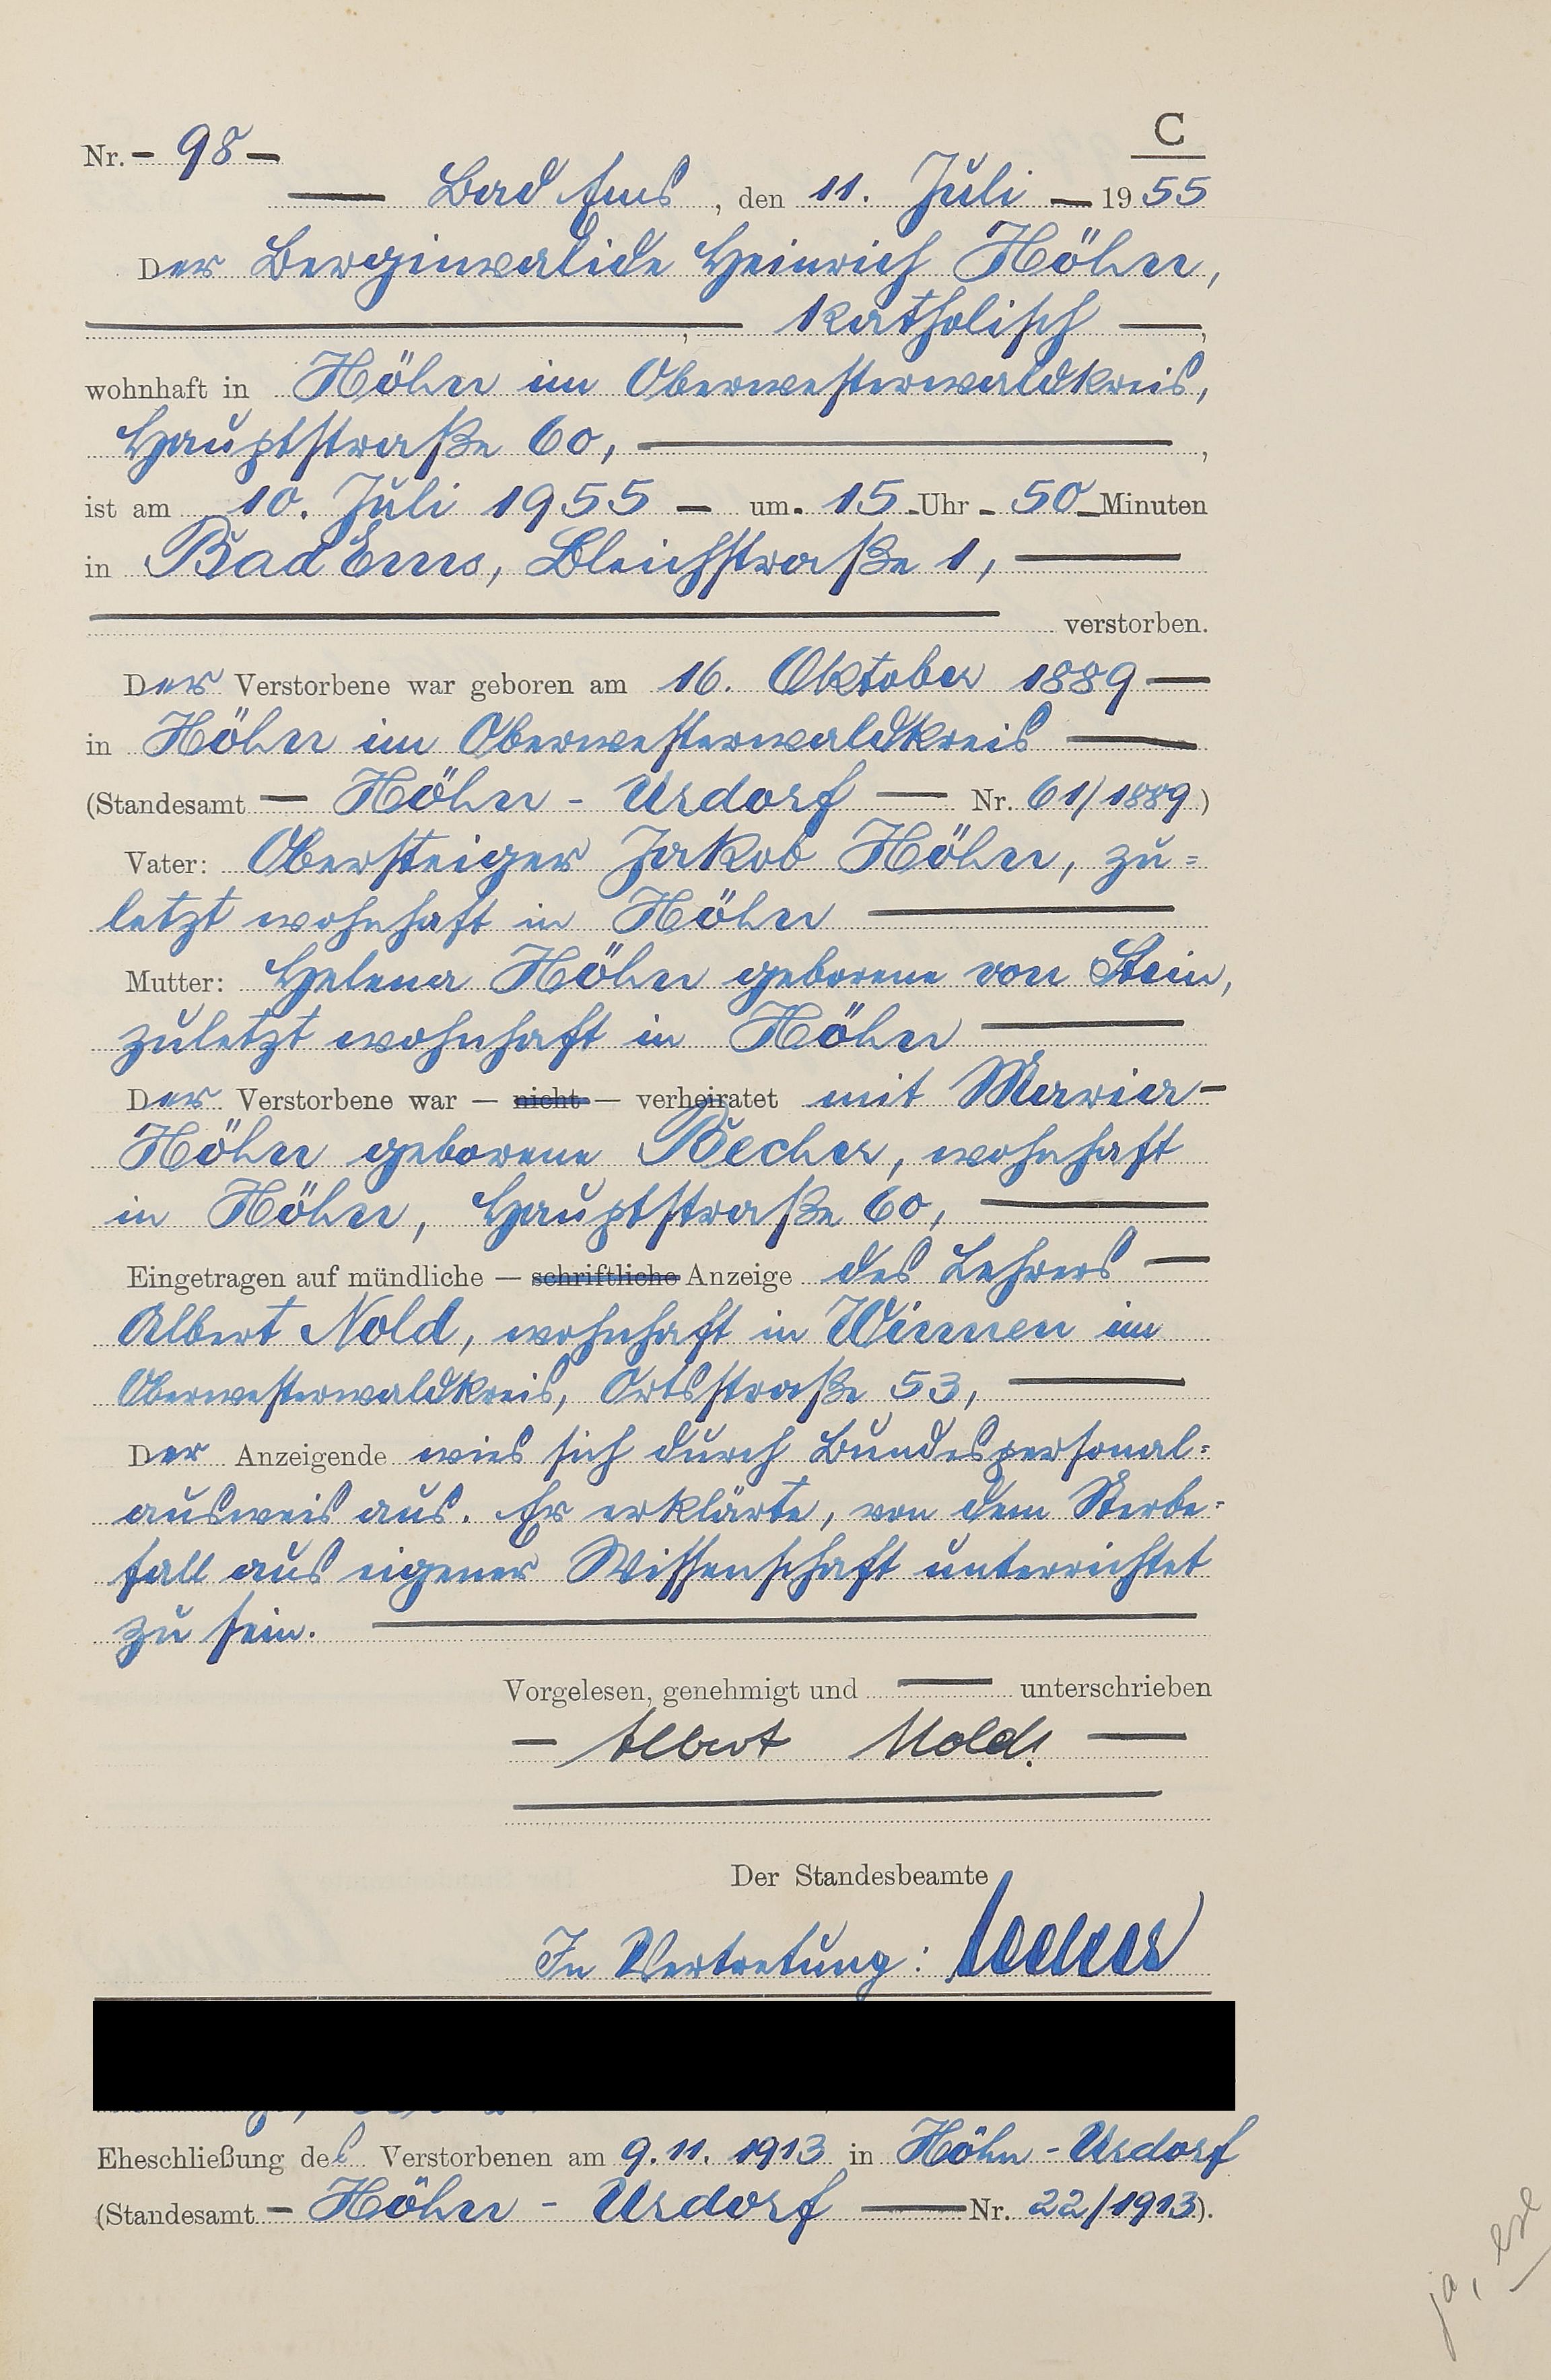 C
Nr. - 98 -
Bad Ems, den 11. Juli 1955
Der Berginvalide Heinrich Höhn,
, katholisch ,
wohnhaft in Höhn im Oberwesterwaldkreis,
Hauptstraße 60, ,
ist am 10. Juli 1955 - um 15 Uhr 50 Minuten
in Bad Ems, Bleichstraße 1,
verstorben.
Der Verstorbene war geboren am 16. Oktober 1889
in Höhn im Oberwesterwaldkreis
(Standesamt Höhn - Urdorf Nr. 61/1889)
Vater: Obersteiger Jakob Höhn, zu=
letzt wohnhaft in Höhn
Mutter: Helena Höhn geborene von Stein,
zuletzt wohnhaft in Höhn
Der Verstorbene war — nicht — verheiratet mit Maria
Höhn geborene Becher, wohnhaft
in Höhn, Hauptstraße 60,
Eingetragen auf mündliche — schriftliche Anzeige des Lehrers
Albert Nold, wohnhaft in Winnen im
Oberwesterwaldkreis, Ortsstraße 53,
Der Anzeigende wies sich durch Bundespersonal=
ausweis aus. Er erklärte, von dem Sterbe=
fall aus eigener Wissenschaft unterrichtet
zu sein.
Vorgelesen, genehmigt und unterschrieben
Albert Nold.
Der Standesbeamte
In Vertretung:
Eheschließung des Verstorbenen am 9.11.1913 in Höhn - Urdorf
(Standesamt - Höhn - Urdorf Nr. 22/1913).
ja,